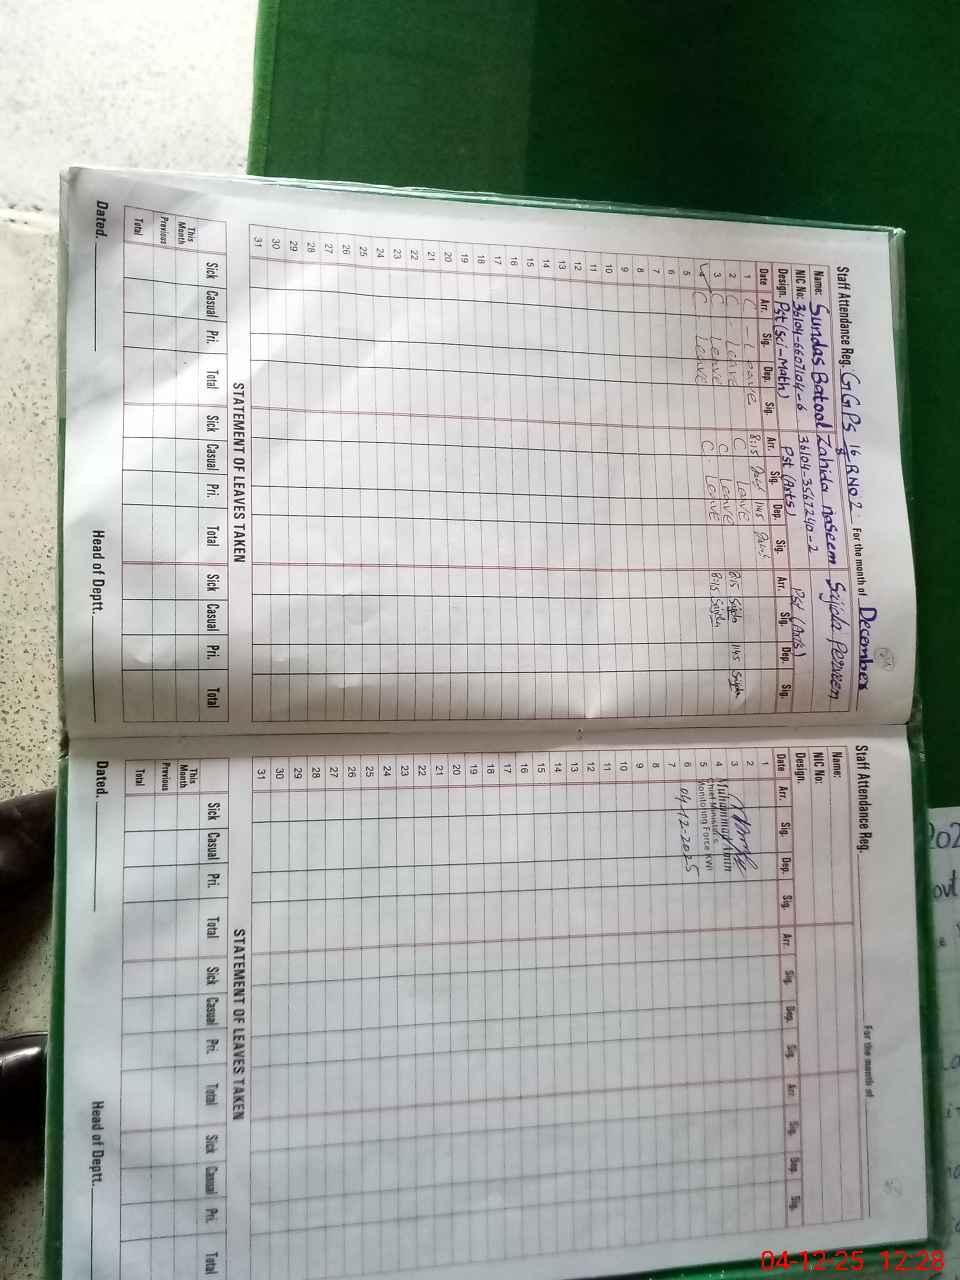 Staff Attendance Reg. GGPS 16/8 R NO 2 For the month of December
Name: Sundas Batool Zahida Naseem Sajida Perveen
NIC No: 36104-6607104-6 36104-3567240-2
Design. Pst (Sci-Math) Pst (Arts) Pst (Arts)
Date Arr. Sig. Dep. Sig. Arr. Sig. Dep. Sig. Arr. Sig. Dep. Sig.
1 C - Leave 8:15 1:45
2 C - Leave C Leave 8:15 Sajida 1:45 Sajida
3 C Leave C Leave 8:15 Sajida
4 C Leave C. Leave
5
6
7
8
9
10
11
12
13
14
15
16
17
18
19
20
21
22
23
24
25
26
27
28
29
30
31
STATEMENT OF LEAVES TAKEN
Sick Casual Pri. Total Sick Casual Pri. Total Sick Casual Pri. Total
This Month
Previous
Total
Dated. Head of Deptt.
Staff Attendance Reg. For the month of
Name:
NIC No:
Design.
Date Arr. Sig. Dep. Sig. Arr. Sig. Dep. Sig. Arr. Sig. Dep. Sig.
1
2
3
4 Muhammad Amin
5 Chief Minister's
Monitoring Force KWl
6 04-12-2025
7
8
9
10
11
12
13
14
15
16
17
18
19
20
21
22
23
24
25
26
27
28
29
30
31
STATEMENT OF LEAVES TAKEN
Sick Casual Pri. Total Sick Casual Pri. Total Sick Casual Pri. Total
This Month
Previous
Total
Dated. Head of Deptt.
04-12-25 12:28